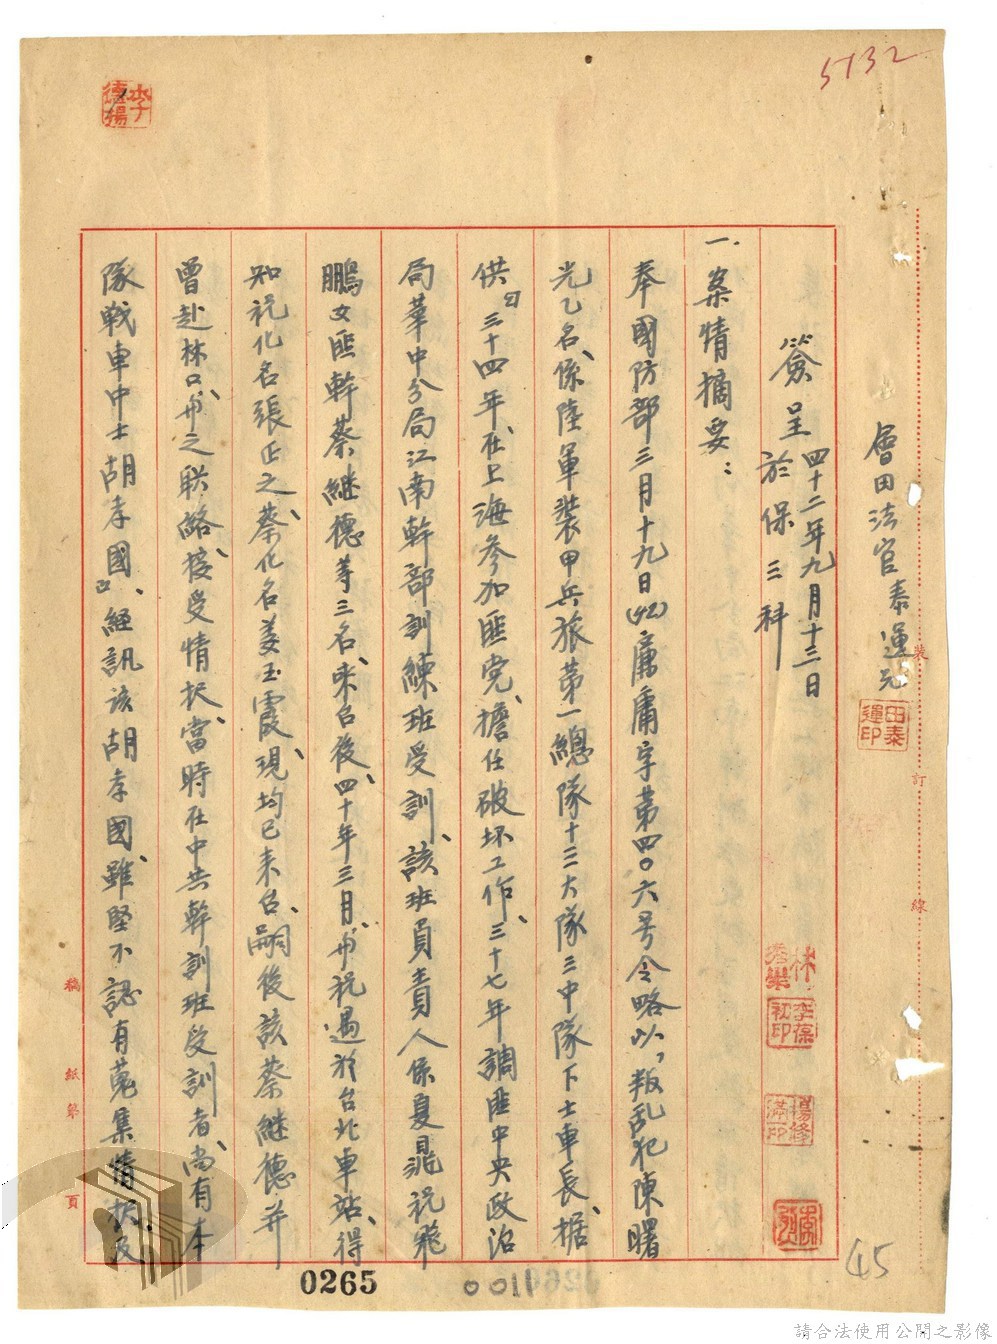 5132
會田法官泰運元
簽呈 四十二年九月十三日
於保三科
一、案情摘要：
奉國防部三月十九日(42)廉庸字第四〇六号令略以，叛乱犯陳曙
光乙名、係陸軍裝甲兵旅第一總隊十三大隊三中隊下士車長、据
供「三十四年、在上海參加匪党、擔任破坏工作、三十七年調匪中央政治
局華中分局江南幹部訓練班受訓、該班負責人係夏飛祝飛
鵬女匪幹蔡継德等三名、來台後、四十年三月、曾祝遇於台北車站、得
知祝化名張正之、蔡化名姜玉霞、現均已來台、嗣後該蔡継德并
曾赴林口、曾之联絡、接受情报、當時在中共幹訓班受訓者、尚有本
隊戰車中士胡孝國」、經訊該胡孝國、雖堅不認有蒐集情报、及
李德揚
田泰運印
李葆初印
楊修滿印
裝
訂
線
稿紙第 頁
0265
0011
45
請合法使用公開之影像